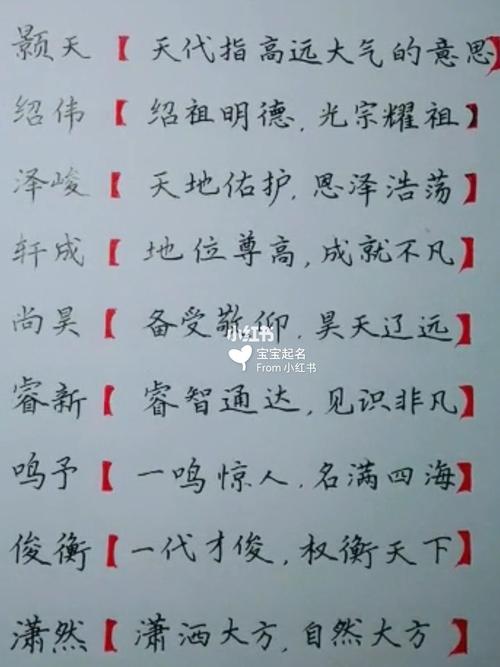 颢天【 天代指高远大气的意思】
绍伟【 绍祖明德,光宗耀祖】
泽峻【 天地佑护,恩泽浩荡】
轩成【 地位尊高,成就不凡】
尚昊【 备受敬仰,昊天辽远】
小红书
宝宝起名
From 小红书
睿新【 睿智通达,见识非凡】
鸣予【 一鸣惊人,名满四海】
俊衡【一代才俊,权衡天下】
潇然【 潇洒大方,自然大方】